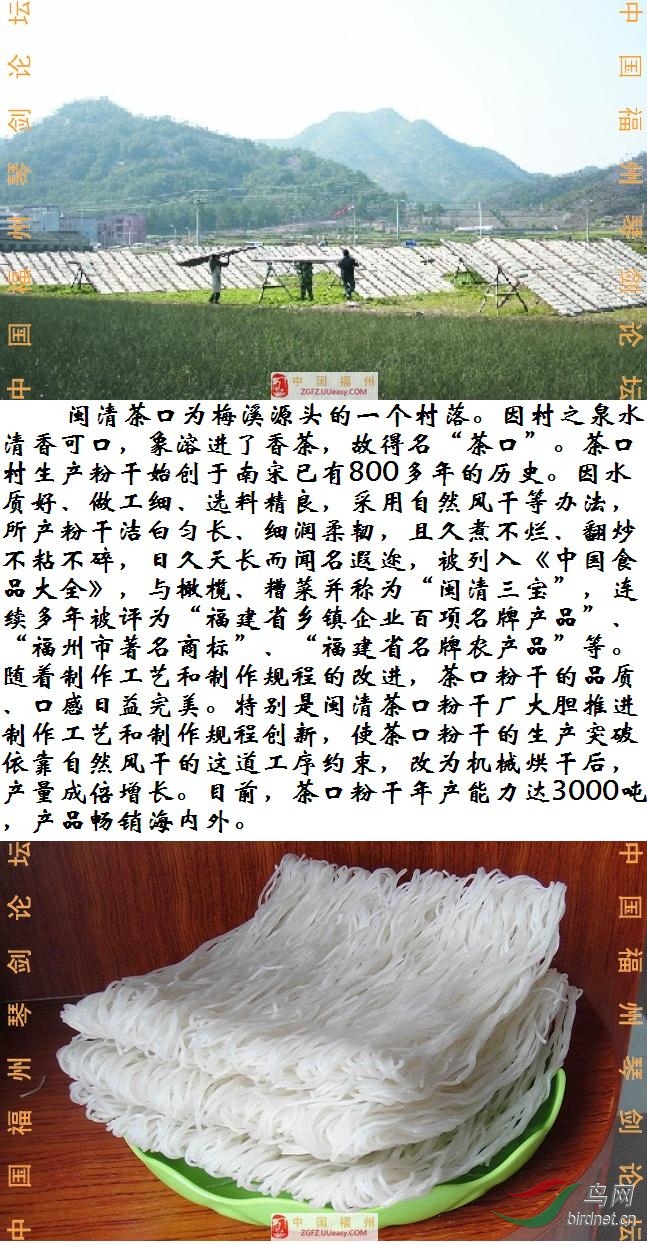 中国福州琴剑论坛
中国福州琴剑论坛
中国福州
ZGFZ.UUeasy.COM
闽清茶口为梅溪源头的一个村落。因村之泉水
清香可口，象溶进了香茶，故得名“茶口”。茶口
村生产粉干始创于南宋已有800多年的历史。因水
质好、做工细、选料精良，采用自然风干等办法，
所产粉干洁白匀长、细润柔韧，且久煮不烂、翻炒
不粘不碎，日久天长而闻名遐迩，被列入《中国食
品大全》，与橄榄、糟菜并称为“闽清三宝”，连
续多年被评为“福建省乡镇企业百项名牌产品”、
“福州市著名商标”、“福建省名牌农产品”等。
随着制作工艺和制作规程的改进，茶口粉干的品质
、口感日益完美。特别是闽清茶口粉干厂大胆推进
制作工艺和制作规程创新，使茶口粉干的生产突破
依靠自然风干的这道工序约束，改为机械烘干后，
产量成倍增长。目前，茶口粉干年产能力达3000吨
，产品畅销海内外。
中国福州琴剑论坛
中国福州琴剑论坛
中国福州
ZGFZ.UUeasy.COM
鸟网
birdnet.cn